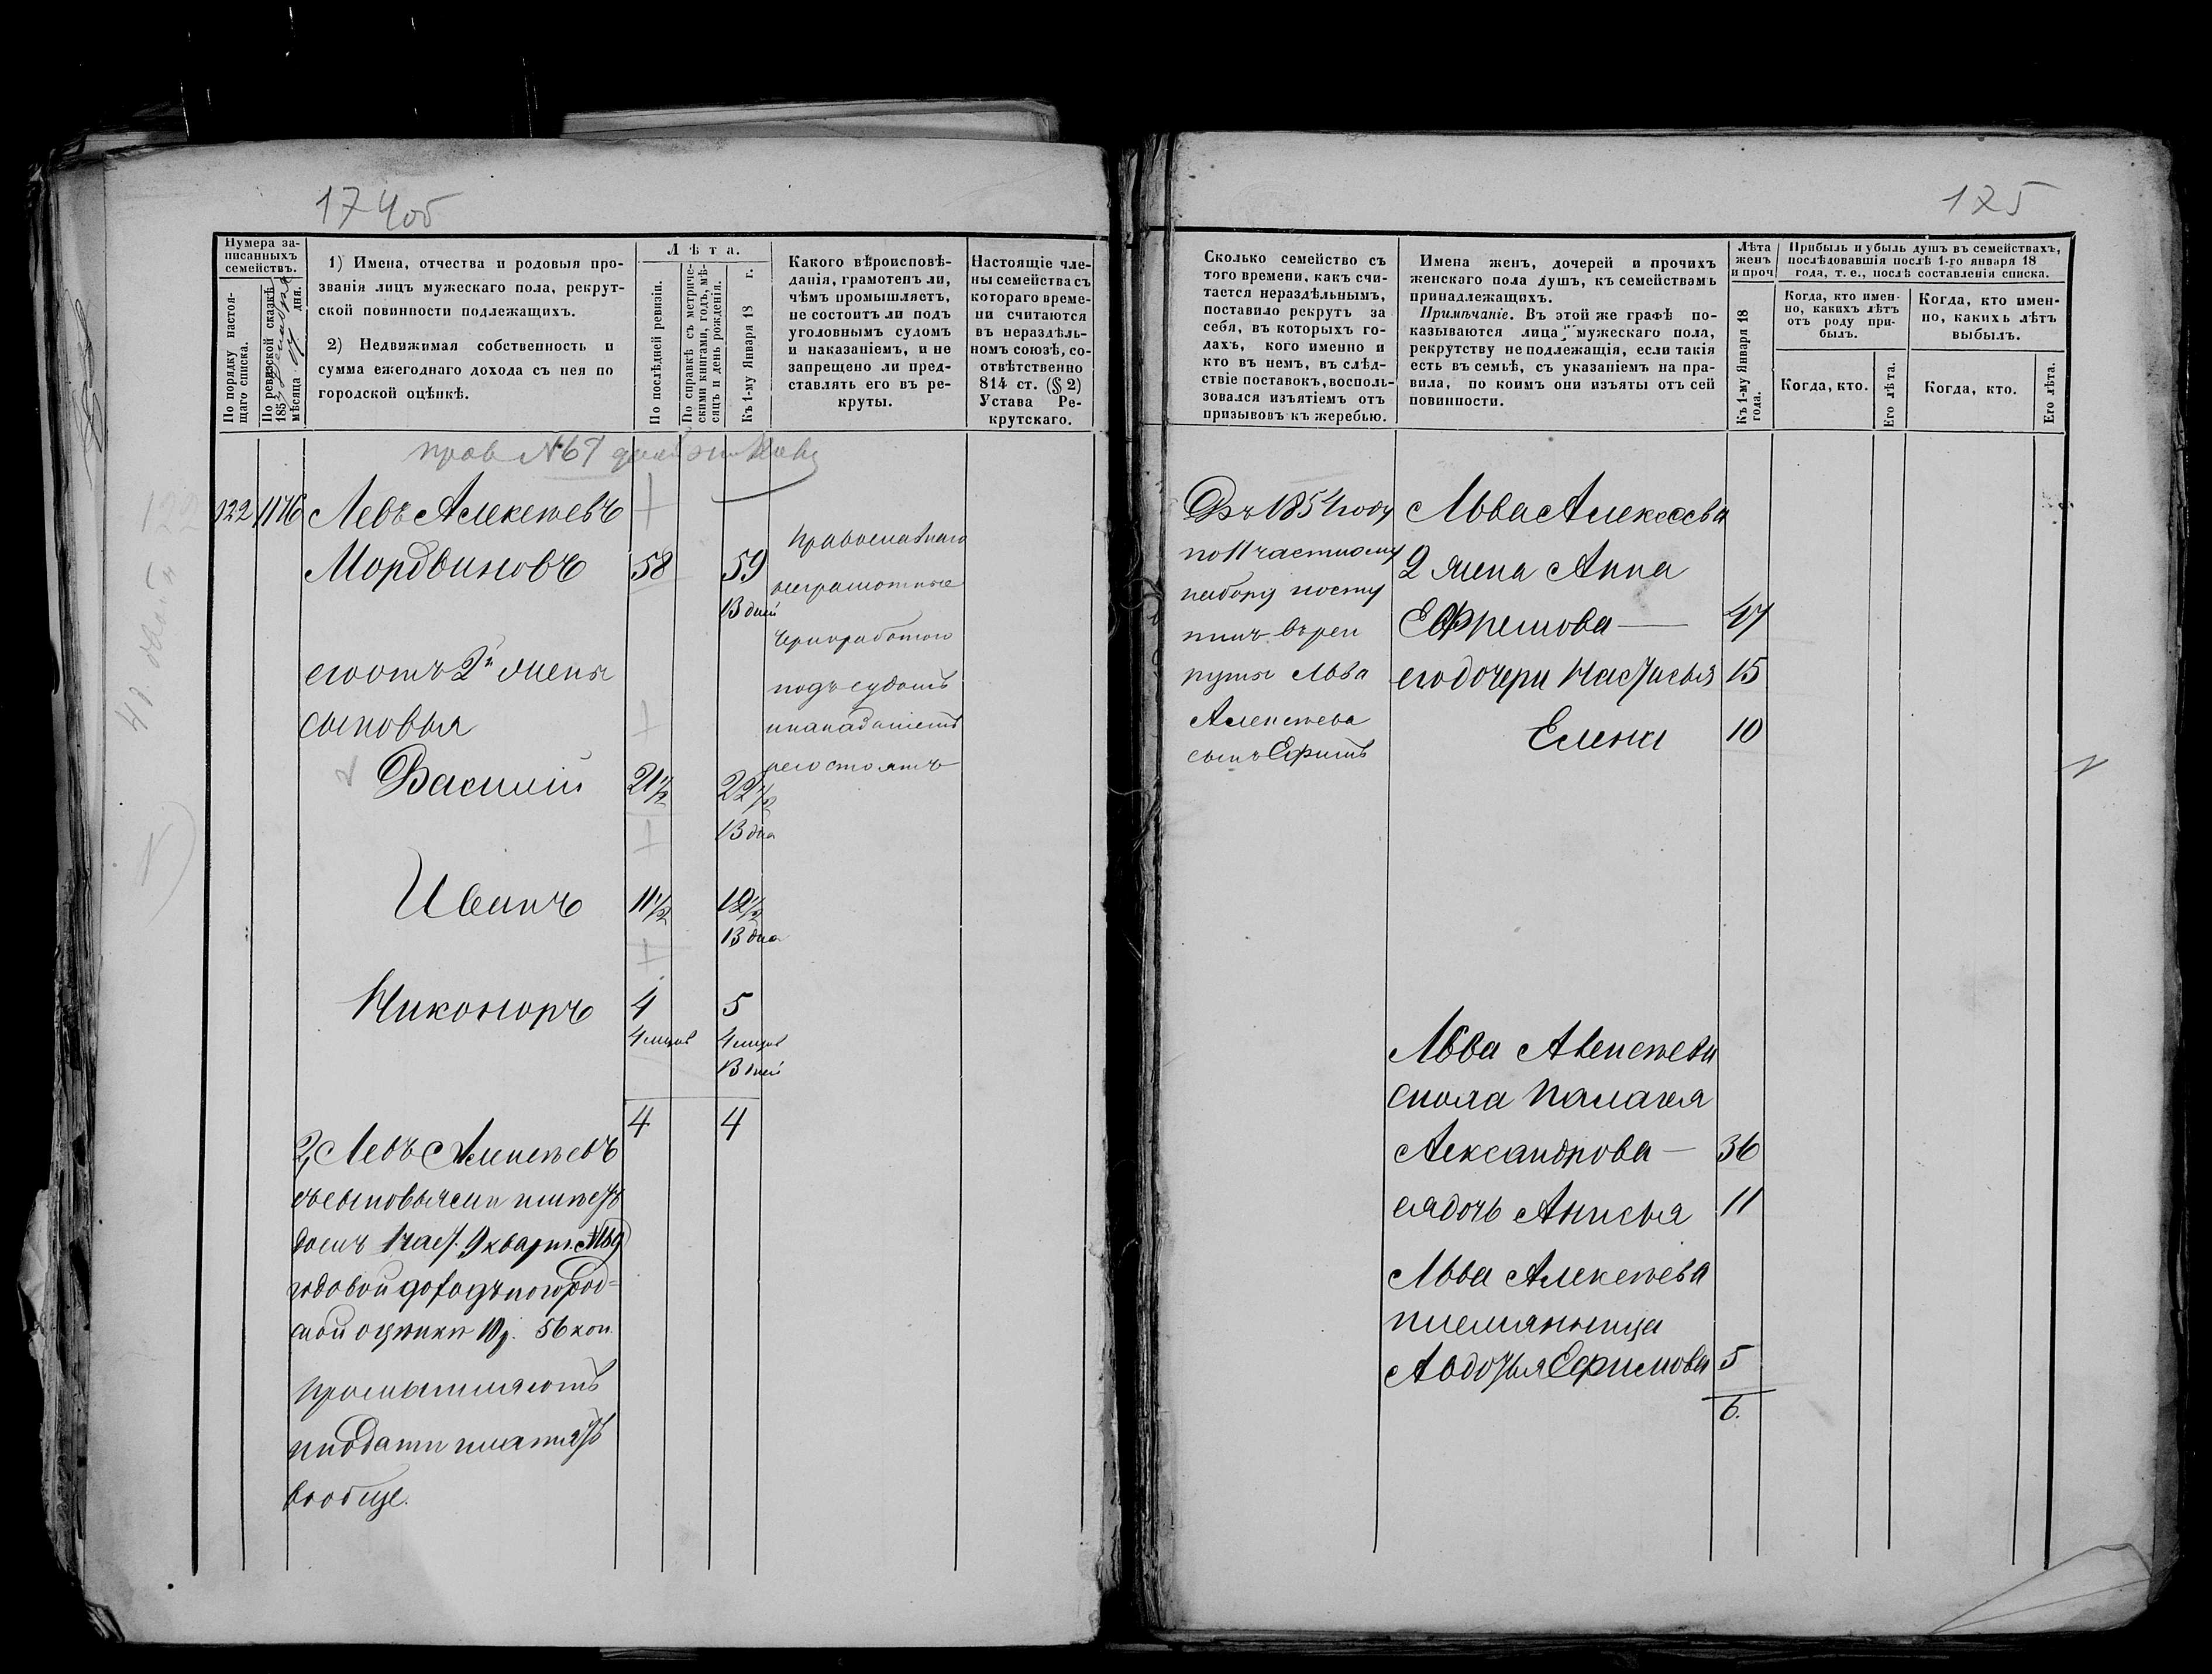 174об
Нумера за-
писанныхъ
семействъ.
По порядку настоя-
щаго списка.
По ревизской сказкѣ
1857
мѣсяца дня.
1) Имена, отчества и родовыя про-
званія лицъ мужескаго пола, рекрут-
ской повинности подлежащихъ.
2) Недвижимая собственность и
сумма ежегоднаго дохода съ нея по
городской оцѣнкѣ.
Лѣта.
По послѣдней ревизіи.
По справкѣ съ метриче-
скими книгами, годъ, мѣ-
сяцъ и день рожденія.
Къ 1-му Января 18 г.
Какого вѣроисповѣ-
данія, грамотенъ ли,
чѣмъ промышляетъ,
не состоитъ ли подъ
уголовнымъ судомъ
и наказаніемъ, и не
запрещено ли пред-
ставлять его въ ре-
круты.
Настоящіе чле-
ны семейства съ
котораго време-
ни считаются
въ нераздѣль-
номъ союзѣ, со-
отвѣтственно
814 ст. (§ 2)
Устава Ре-
крутскаго.
№ 67
122 1176 Левъ Алексѣевъ
Мордвиновъ 58 59
13 дней
Православнаго
неграмотные
чернработою
подъ судомъ
и наказаніемъ
не состоятъ
его отъ 2й жены
сыновья
Василій 21 1/2 22 1/2
13 дня
Иванъ 11 1/2 12 1/2
13 дня
Никоноръ 4 5
4 мцов 4 мцов
13 дней
4 4
2, Левъ Алексѣевъ
съ сыновьями имѣетъ
домъ 1 част. 9 кварт. №89
годовой доходъ по город=
ской оцѣнки 10 р. 56 коп.
Промышляютъ
и подати платятъ
вообще.
175
Сколько семейство съ
того времени, какъ счи-
тается нераздѣльнымъ,
поставило рекрутъ за
себя, въ которыхъ го-
дахъ, кого именно и
кто въ немъ, въ слѣд-
ствіе поставокъ, восполь-
зовался изъятіемъ отъ
призывовъ къ жеребью.
Имена женъ, дочерей и прочихъ
женскаго пола душъ, къ семействамъ
принадлежащихъ.
Примѣчаніе. Въ этой же графѣ по-
казываются лица мужескаго пола,
рекрутству не подлежащія, если такія
есть въ семьѣ, съ указаніемъ на пра-
вила, по коимъ они изъяты отъ сей
повинности.
Лѣта
женъ
и проч
Къ 1-му Января 18
года.
Прибыль и убыль душъ въ семействахъ,
послѣдовавшія послѣ 1-го января 18
года, т. е., послѣ составленія списка.
Когда, кто имен-
но, какихъ лѣтъ
отъ роду при-
былъ.
Когда, кто.
Его лѣта.
Когда, кто имен-
но, какихъ лѣтъ
выбылъ.
Когда, кто.
Его лѣта.
Въ 1854 году
по 11 частному
набору посту
пилъ въ рек
руты Льва
Алексѣева
сынъ Ефимъ
Льва Алексеева
2 жена Анна
Ефремова — 47
его дочери Настасья 15
Елена 10
Льва Алексѣева
сноха Палагея
Александрова — 36
ея дочь Анисья 11
Льва Алексѣева
племянница
Авдотья Ефимова 5
6.